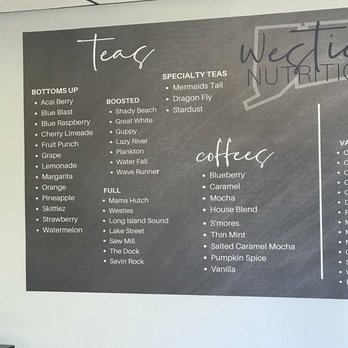 teas
BOTTOMS UP
Acai Berry
Blue Blast
Blue Raspberry
Cherry Limeade
Fruit Punch
Grape
Lemonade
Margarita
Orange
Pineapple
Skittlez
Strawberry
Watermelon
BOOSTED
Shady Beach
Great White
Guppy
Lazy River
Plankton
Water Fall
Wave Runner
FULL
Mama Hutch
Westies
Long Island Sound
Lake Street
Saw Mill
The Dock
Savin Rock
SPECIALTY TEAS
Mermaids Tail
Dragon Fly
Stardust
coffees
Blueberry
Caramel
Mocha
House Blend
S'mores
Thin Mint
Salted Caramel Mocha
Pumpkin Spice
Vanilla
Westie
NUTRITIO
VA